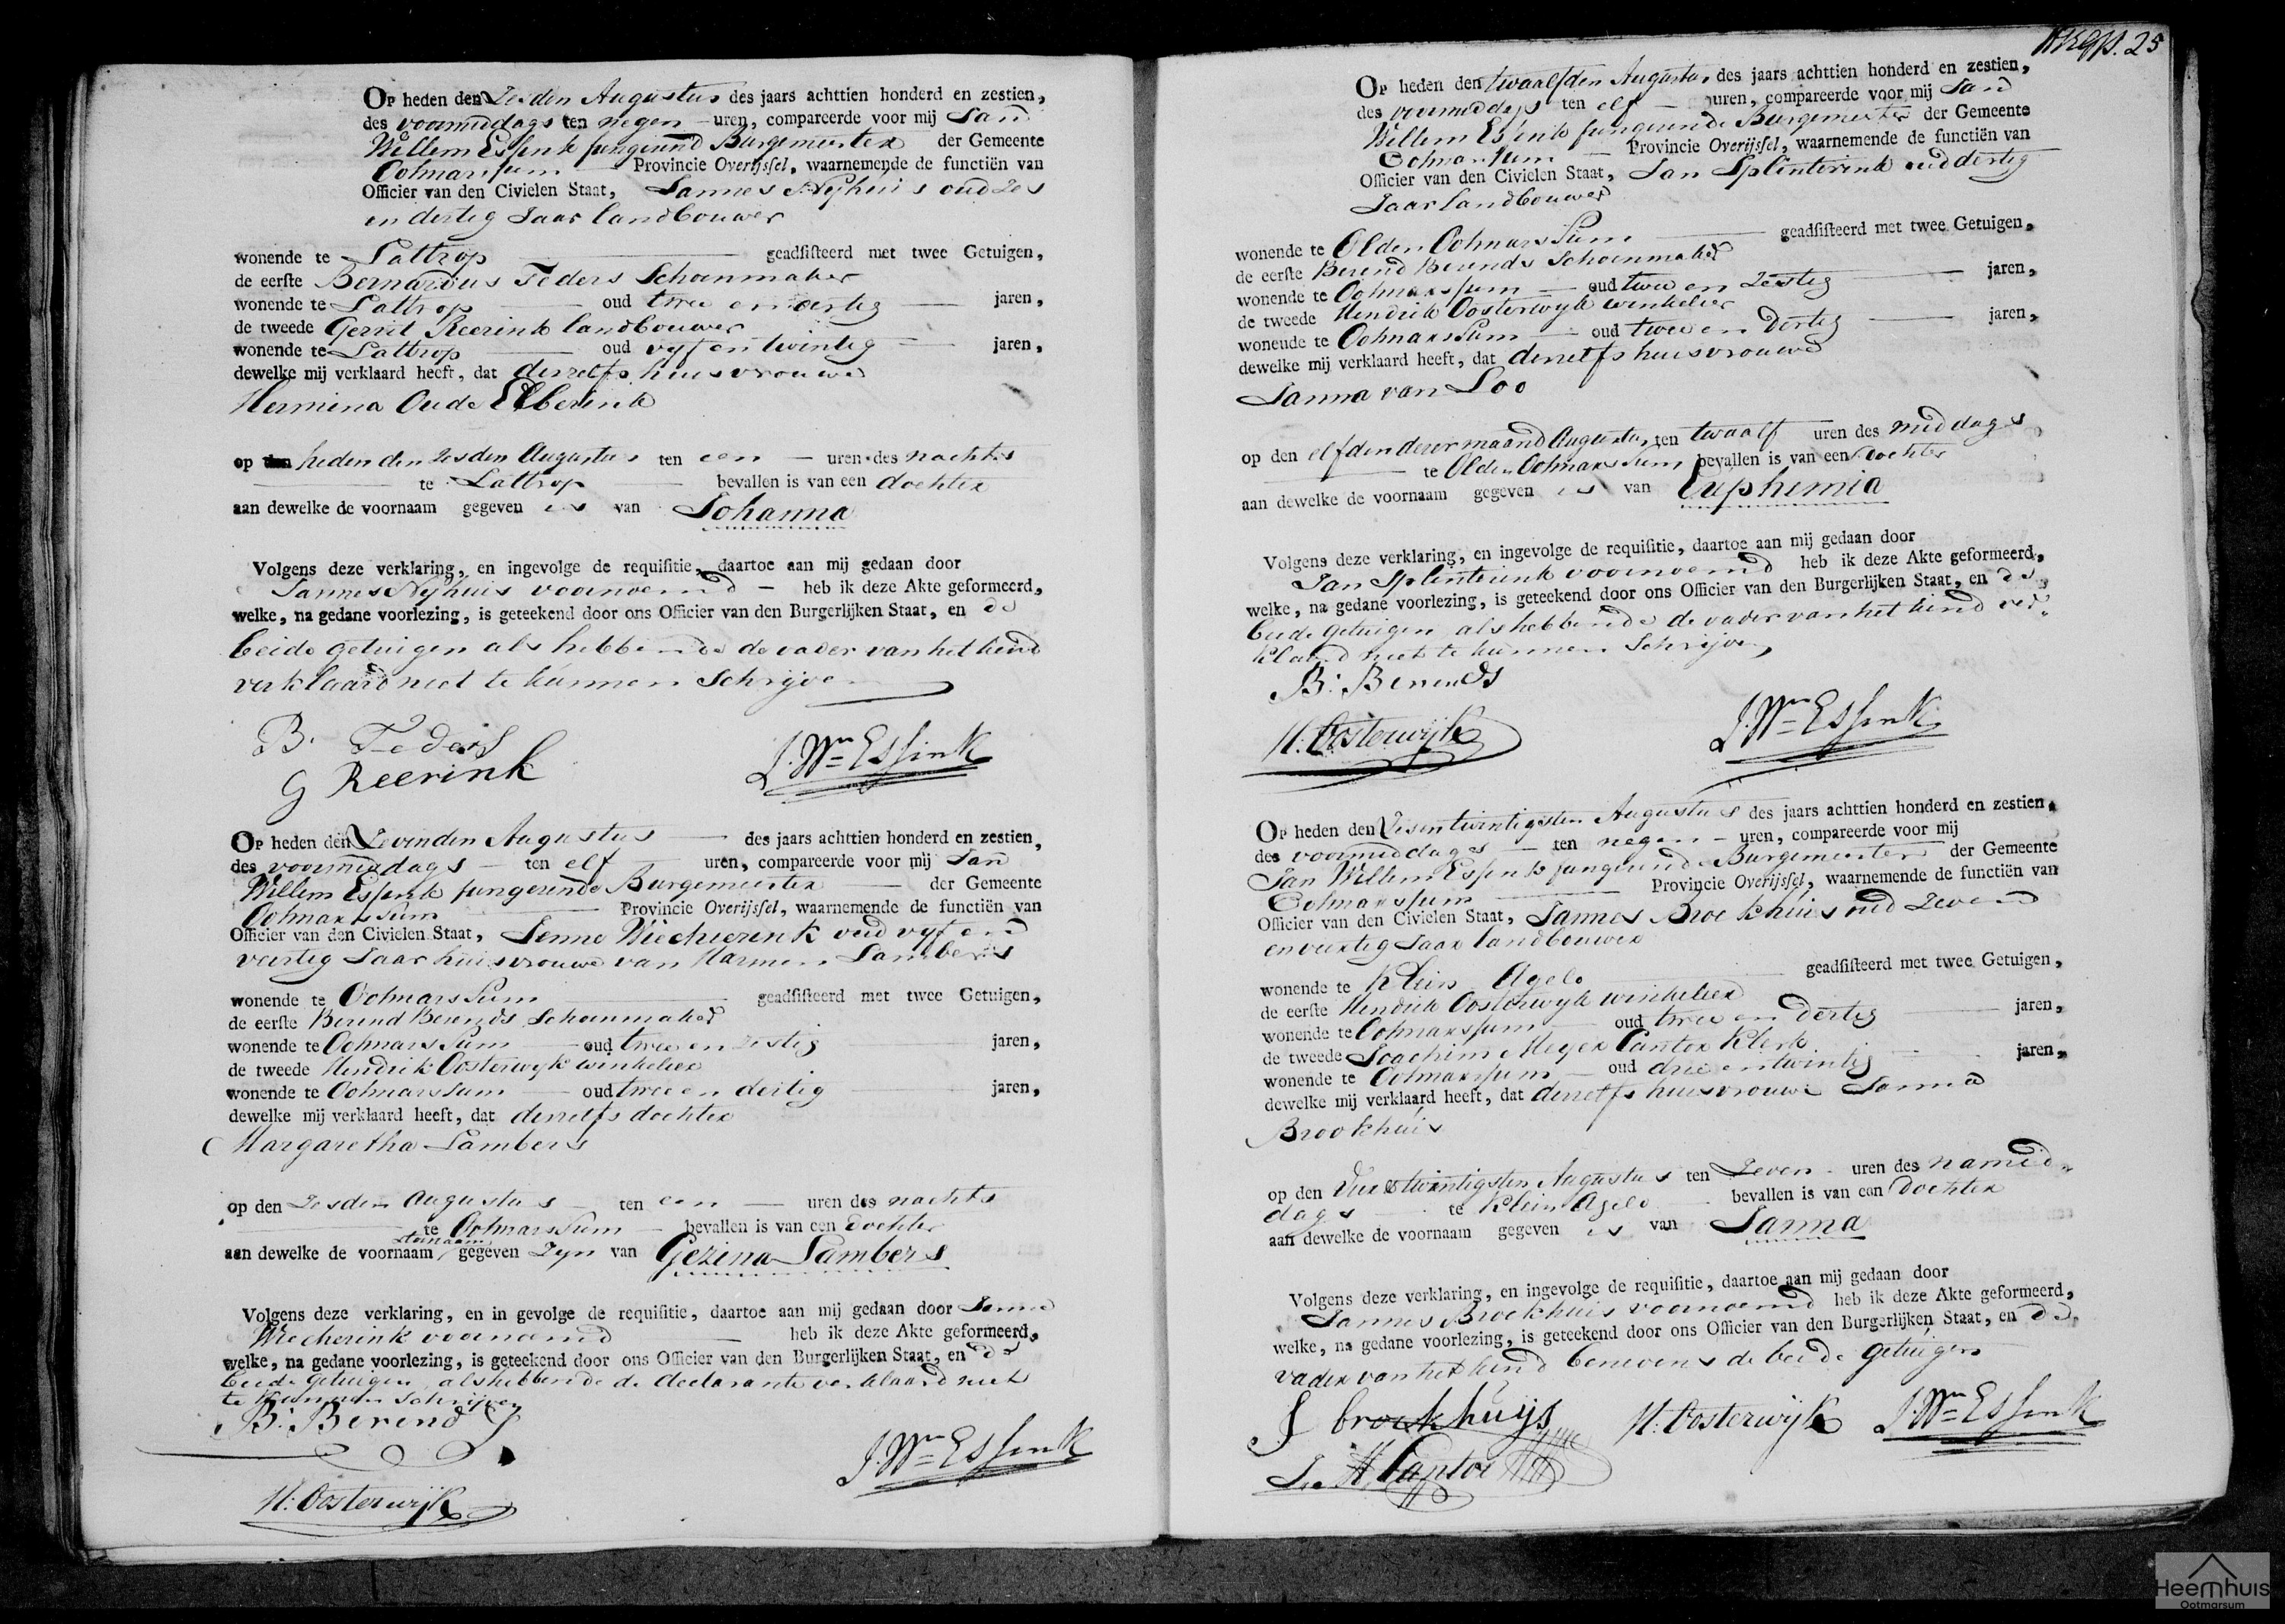 Op heden den Zesden Augustus des jaars achttien honderd en zestien,
des voormiddags ten negen uren, compareerde voor mij Jan
Willem Essink fungerend Burgemeester der Gemeente
Ootmarssum Provincie Overijssel, waarnemende de functiën van
Officier van den Civielen Staat, Jannes Nyhuis oud Zes
en dertig Jaar landbouwer
wonende te Lattrop geadsisteerd met twee Getuigen,
de eerste Bernardus Feders Schoenmaker
wonende te Lattrop oud twee en dertig jaren,
de tweede Gerrit Reerink landbouwer
wonende te Lattrop oud vyf en twintig jaren,
dewelke mij verklaard heeft, dat deszelfs huisvrouwe
Hermina Oude Elberink
op den heden den Zesden Augustus ten een uren des nachts
te Lattrop bevallen is van een dochter
aan dewelke de voornaam gegeven is van Johanna
Volgens deze verklaring, en ingevolge de requisitie, daartoe aan mij gedaan door
Jannes Nyhuis voornoemd heb ik deze Akte geformeerd,
welke, na gedane voorlezing, is geteekend door ons Officier van den Burgerlijken Staat, en de
beide getuigen als hebbende de vader van het kind
verklaard niet te kunnen Schrijven
B. Feders
G Reerink
J. Wm Essink
Op heden den Zevenden Augustus des jaars achttien honderd en zestien,
des voormiddags ten elf uren, compareerde voor mij Jan
Willem Essink fungerende Burgemeester der Gemeente
Ootmarssum Provincie Overijssel, waarnemende de functiën van
Officier van den Civielen Staat, Jenne Wiecherink oud vyf en
veertig Jaar huisvrouwe van Harmen Lambers
wonende te Ootmarssum geadsisteerd met twee Getuigen,
de eerste Berend Berends Schoenmaker
wonende te Ootmarssum oud twee en zestig jaren,
de tweede Hendrik Oosterwyk winkelier
wonende te Ootmarssum oud twee en dertig jaren,
dewelke mij verklaard heeft, dat derzelfs dochter
Margaretha Lambers
op den Zesden Augustus ten een uren des nachts
te Ootmarssum bevallen is van een dochter
stamnaam
aan dewelke de voornaam gegeven Zyn van Gezina Lambers
Volgens deze verklaring, en in gevolge de requisitie, daartoe aan mij gedaan door Jenne
Wiecherink voornoemd heb ik deze Akte geformeerd,
welke, na gedane voorlezing, is geteekend door ons Officier van den Burgerlijken Staat, en de
beide getuigen als hebbende de declarante verklaard niet
te kunnen Schrijven
B: Berends
J. Wm Essink
H: Oosterwijk
25
Op heden den twaalfden Augustus des jaars achttien honderd en zestien,
des voormiddags ten elf uren, compareerde voor mij Jan
Willem Essink fungerende Burgemeester der Gemeente
Ootmarssum Provincie Overijssel, waarnemende de functiën van
Officier van den Civielen Staat, Jan Splinterink oud dertig
Jaar landbouwer
wonende te Olden Ootmarssum geadsisteerd met twee Getuigen,
de eerste Berend Berends Schoenmaker
wonende te Ootmarssum oud twee en Zestig jaren,
de tweede Hendrik Oosterwyk winkelier
wonende te Ootmarssum oud twee en Dertig jaren,
dewelke mij verklaard heeft, dat deszelfs huisvrouwe
Janna van Loo
op den elfden dezer maand Augustus ten twaalf uren des middags
te Olden Ootmarssum bevallen is van een dochter
aan dewelke de voornaam gegeven is van Euphemia
Volgens deze verklaring, en ingevolge de requisitie, daartoe aan mij gedaan door
Jan Splinterink voornoemd heb ik deze Akte geformeerd,
welke, na gedane voorlezing, is geteekend door ons Officier van den Burgerlijken Staat, en de
beide getuigen als hebbende de vader van het kind ver-
klaard niet te kunnen Schrijven
B: Berends
J. Wm Essink
H: Oosterwijk
Op heden den Zesentwintigsten Augustus des jaars achttien honderd en zestien,
des voormiddags ten negen uren, compareerde voor mij
Jan Willem Essink fungerende Burgemeester der Gemeente
Ootmarssum Provincie Overijssel, waarnemende de functiën van
Officier van den Civielen Staat, Jannes Broekhuis oud Zeven
en veertig Jaar landbouwer
wonende te Klein Agelo geadsisteerd met twee Getuigen,
de eerste Hendrik Oosterwyk winkelier
wonende te Ootmarssum oud twee en dertig jaren,
de tweede Joachim Meyer Cantor Klerk
wonende te Ootmarssum oud drie en twintig jaren,
dewelke mij verklaard heeft, dat deszelfs huisvrouwe Janna
Brookhuis
op den Vierentwintigsten Augustus ten Zeven uren des namid-
dags te Klein Agelo bevallen is van een Dochter
aan dewelke de voornaam gegeven is van Janna
Volgens deze verklaring, en ingevolge de requisitie, daartoe aan mij gedaan door
Jannes Broekhuis voornoemd heb ik deze Akte geformeerd,
welke, na gedane voorlezing, is geteekend door ons Officier van den Burgerlijken Staat, en de
vader van het kind benevens de beide getuigen
J broekhuijs H: Oosterwijk J. Wm Essink
J. M Cantor
Heemhuis
Ootmarsum